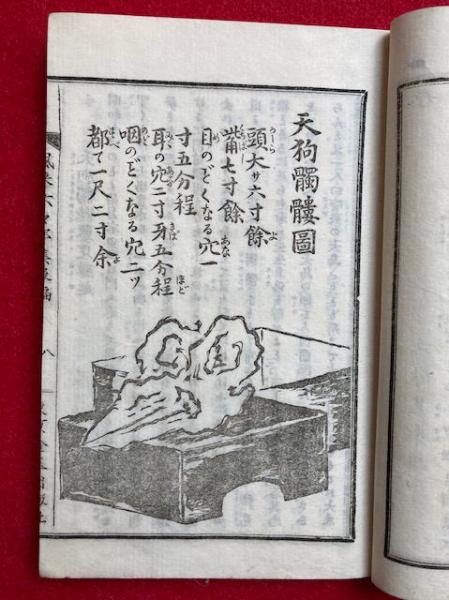 天狗髑髏圖
頭大サ六寸餘
觜七寸餘
目のごとくなる穴一
寸五分程
耳の穴二寸牙五分程
咽のごとくなる穴二ツ
都て一尺二寸余
八